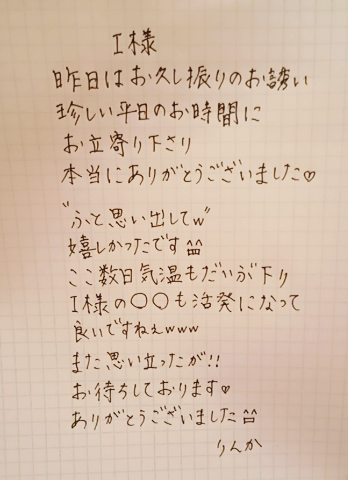 I様
昨日はお久し振りのお誘い
珍しい平日のお時間に
お立寄り下さり
本当にありがとうございました♡
"ふと思い出してw"
嬉しかったです^^
ここ数日気温もだいぶ下り
I様の〇〇も活発になって
良いですねぇwww
また思い立ったが!!
お待ちしております♡
ありがとうございました^^
りんか